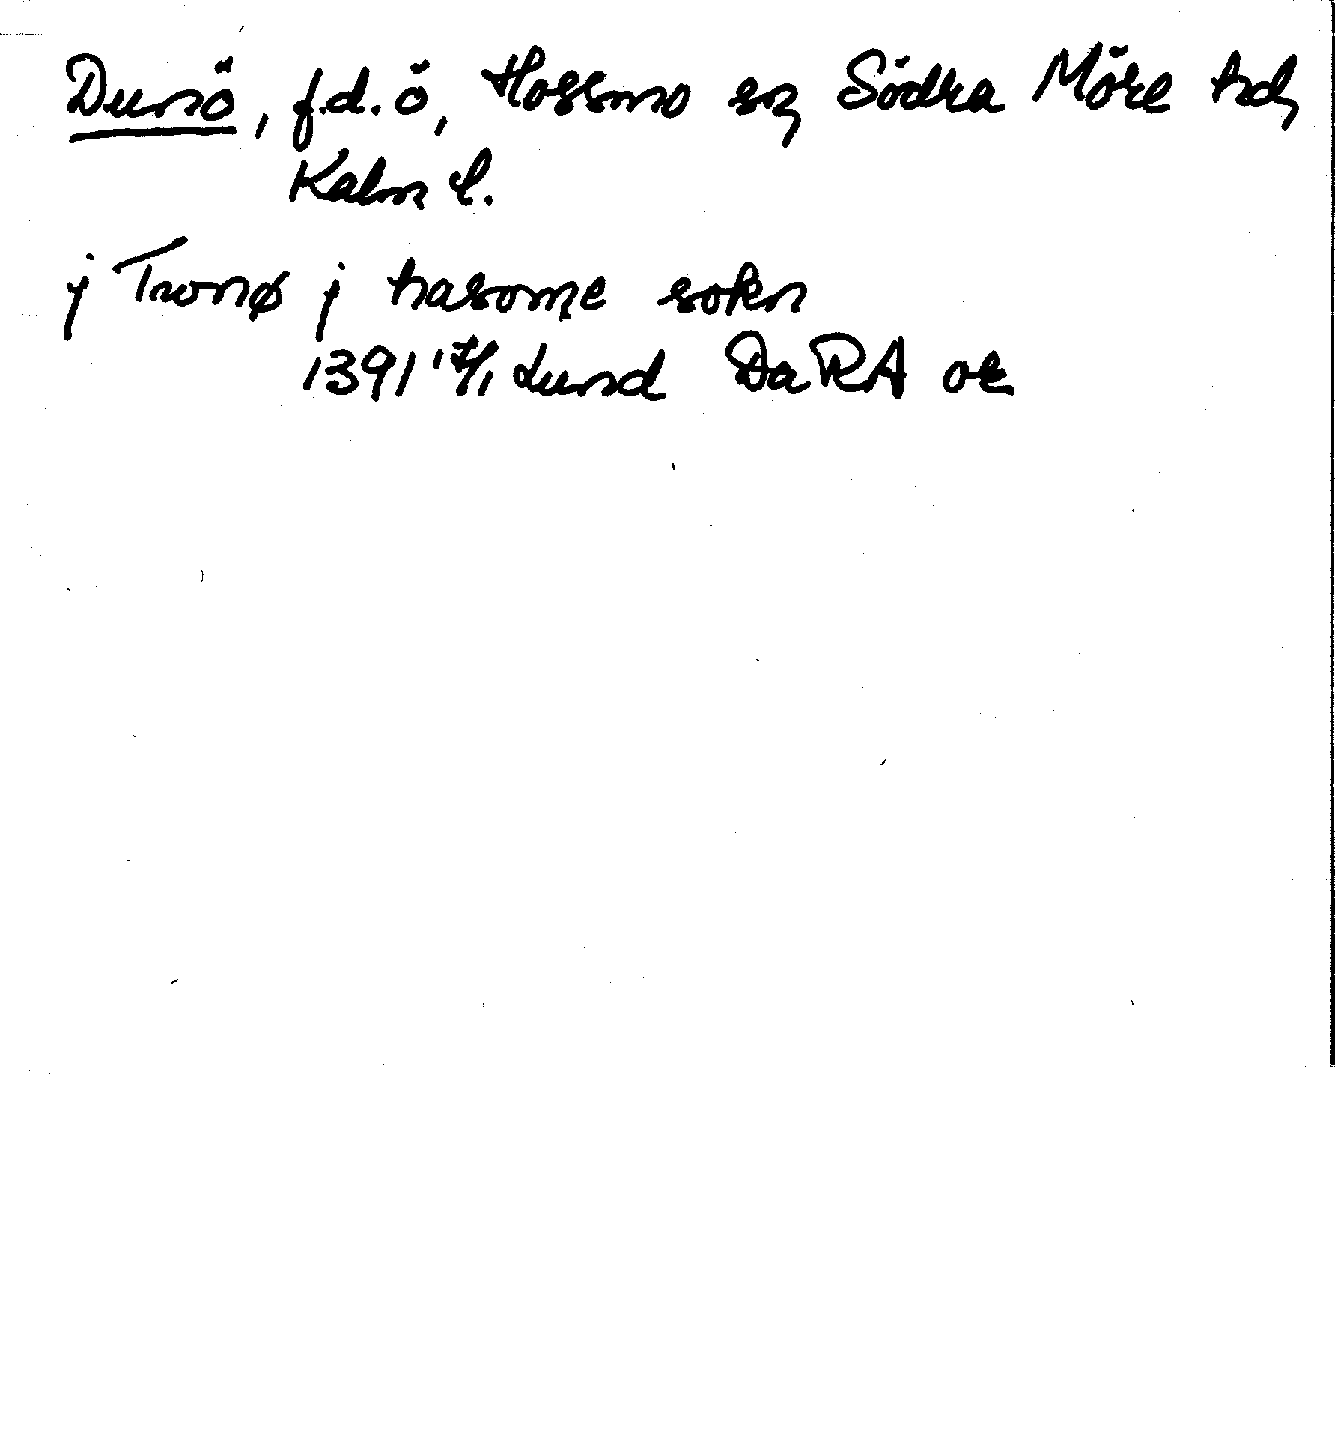 Dunö, f.d. ö, Hossmo sn, Södra Möre hd,
Kalm l.
j Tronø j hasome sokn
1391 17/1 Lund DaRA or